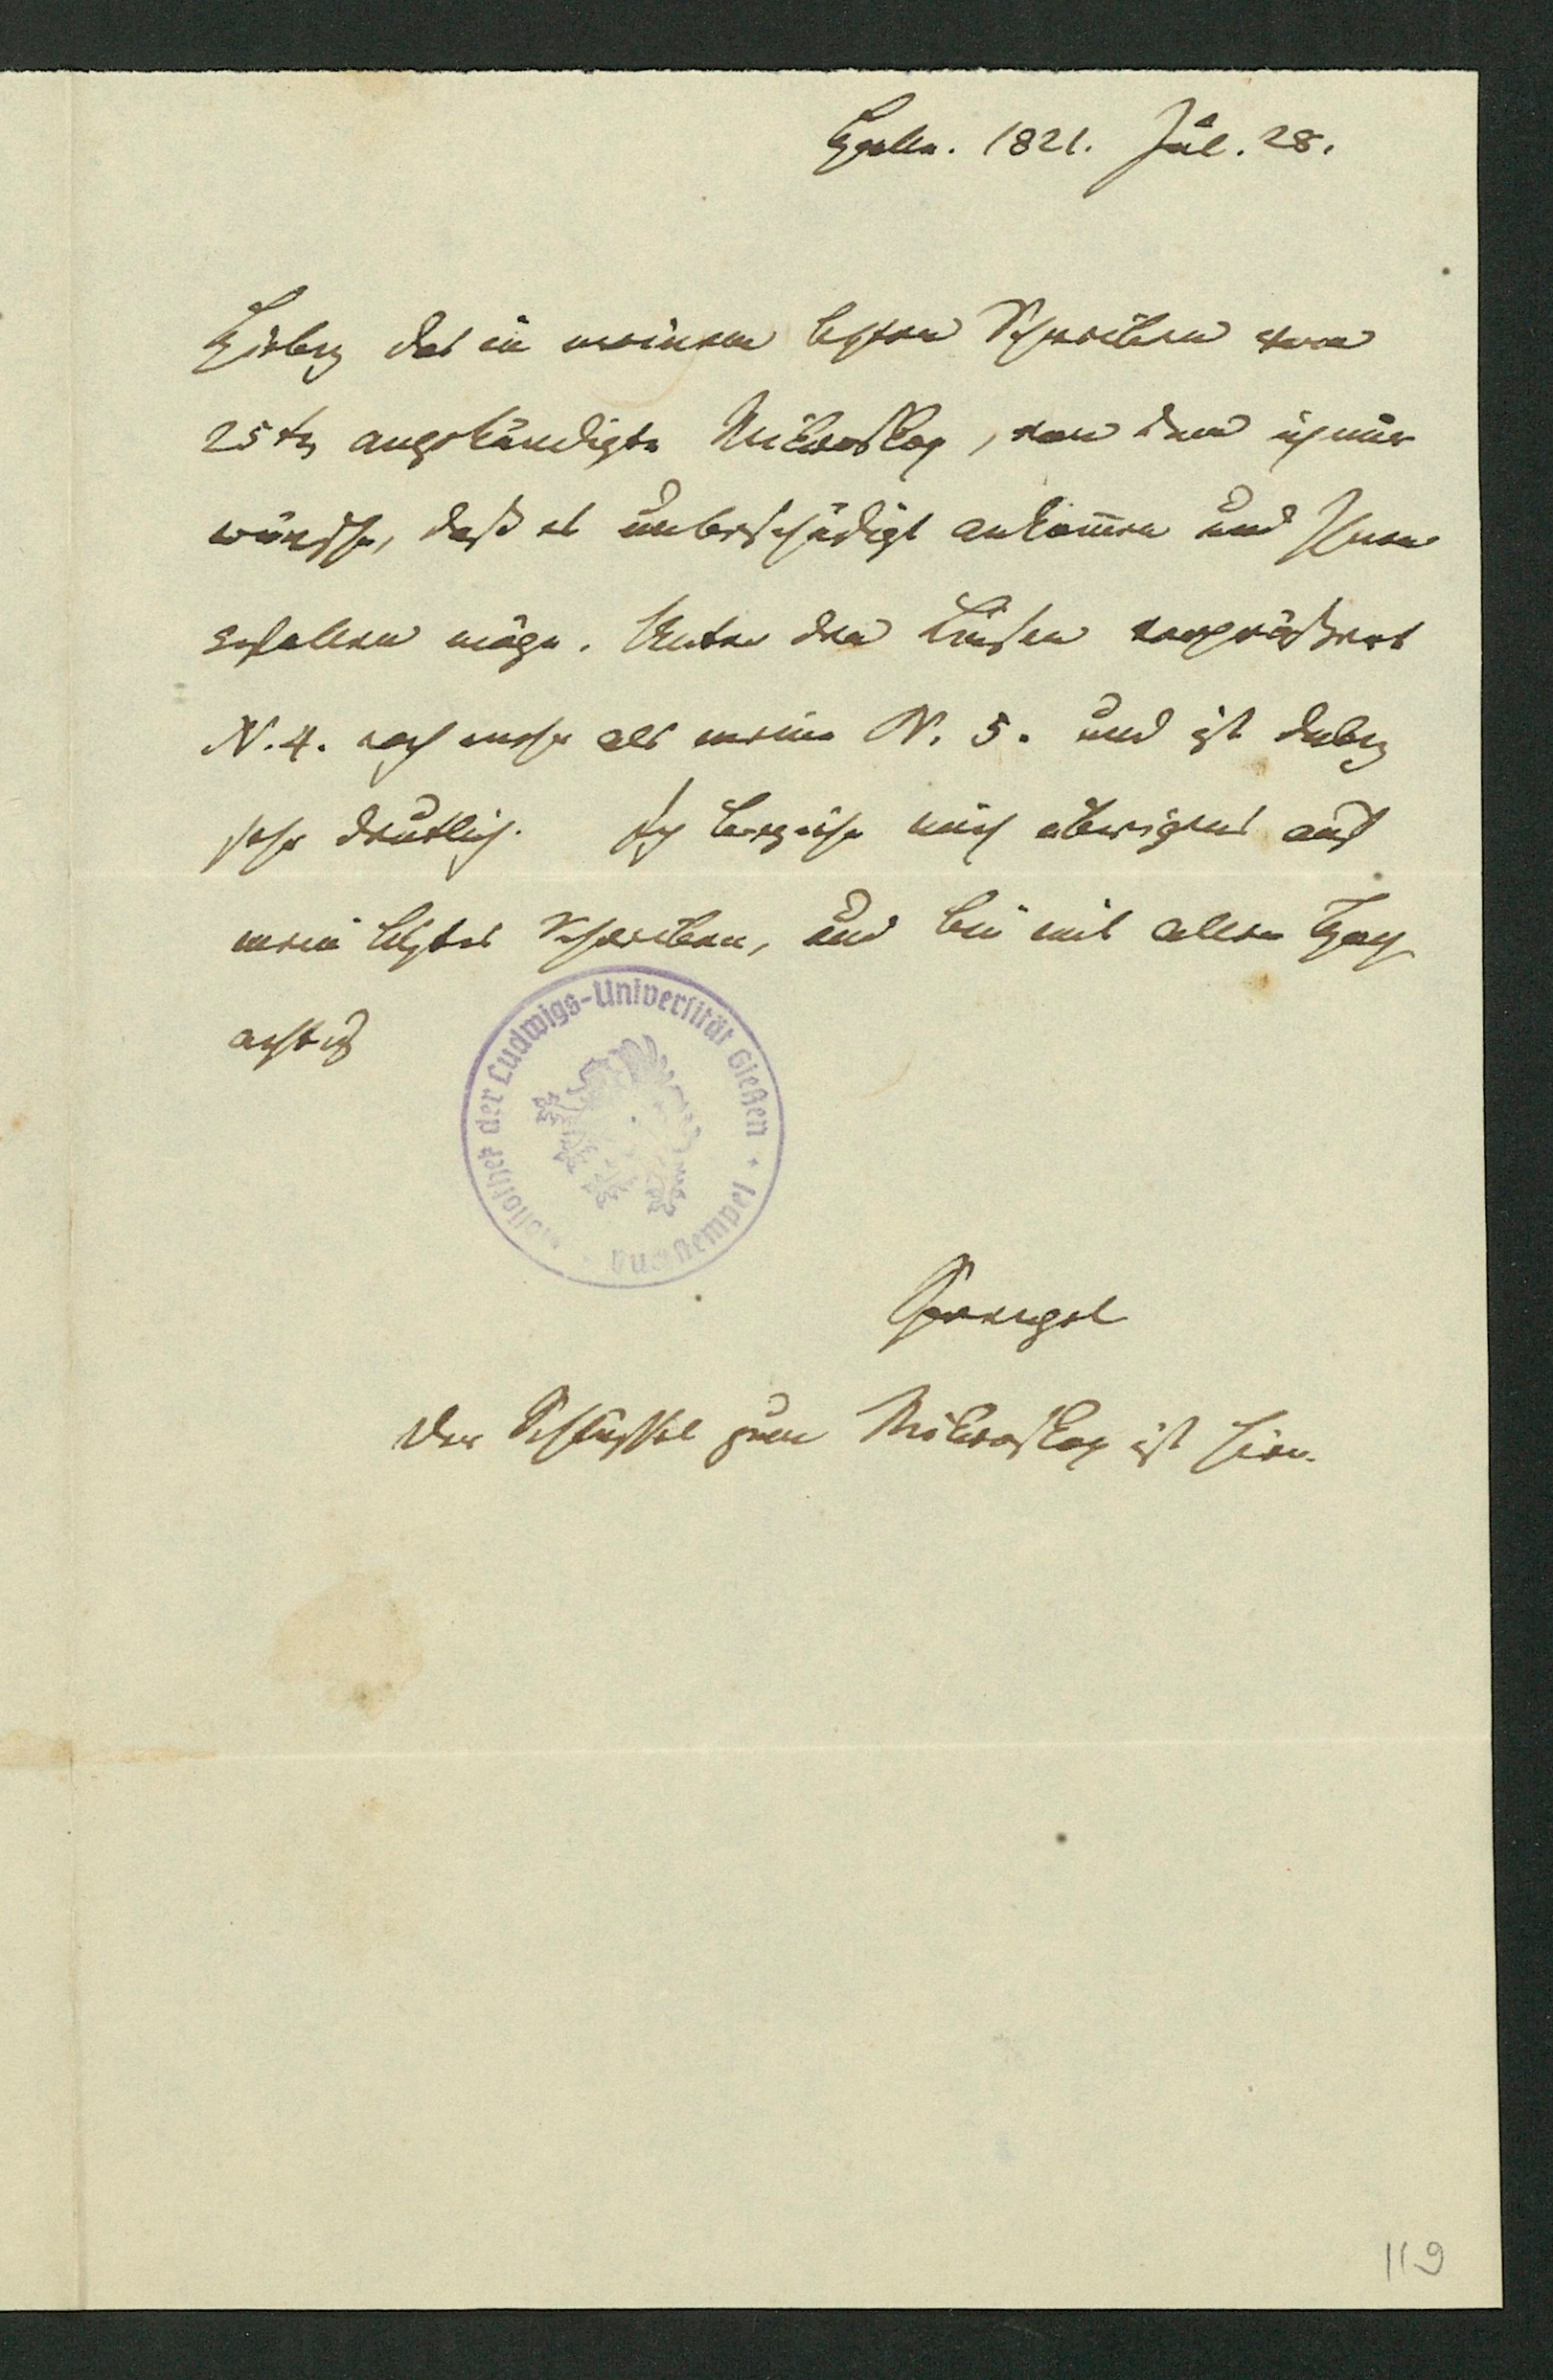 Halle. 1821. Jul. 28.
Hiebey das in meinem letzten Schreiben vom
25ten angekündigte Mikroskop, von dem ich nur
wünsche, daß es unbeschädigt ankom̅en und Ihnen
gefallen möge. Unter den Linsen vergrößert
N. 4. noch mehr als meine N. 5. und ist dabey
sehr deutlich. Ich beziehe mich übrigens auf
mein letztes Schreiben, und bin mit aller Hoch
achtung
Bibliothek der Ludwigs-Universität Gießen • Buchstempel
Sprengel
Der Schlüssel zum Mikroskop ist hier.
119